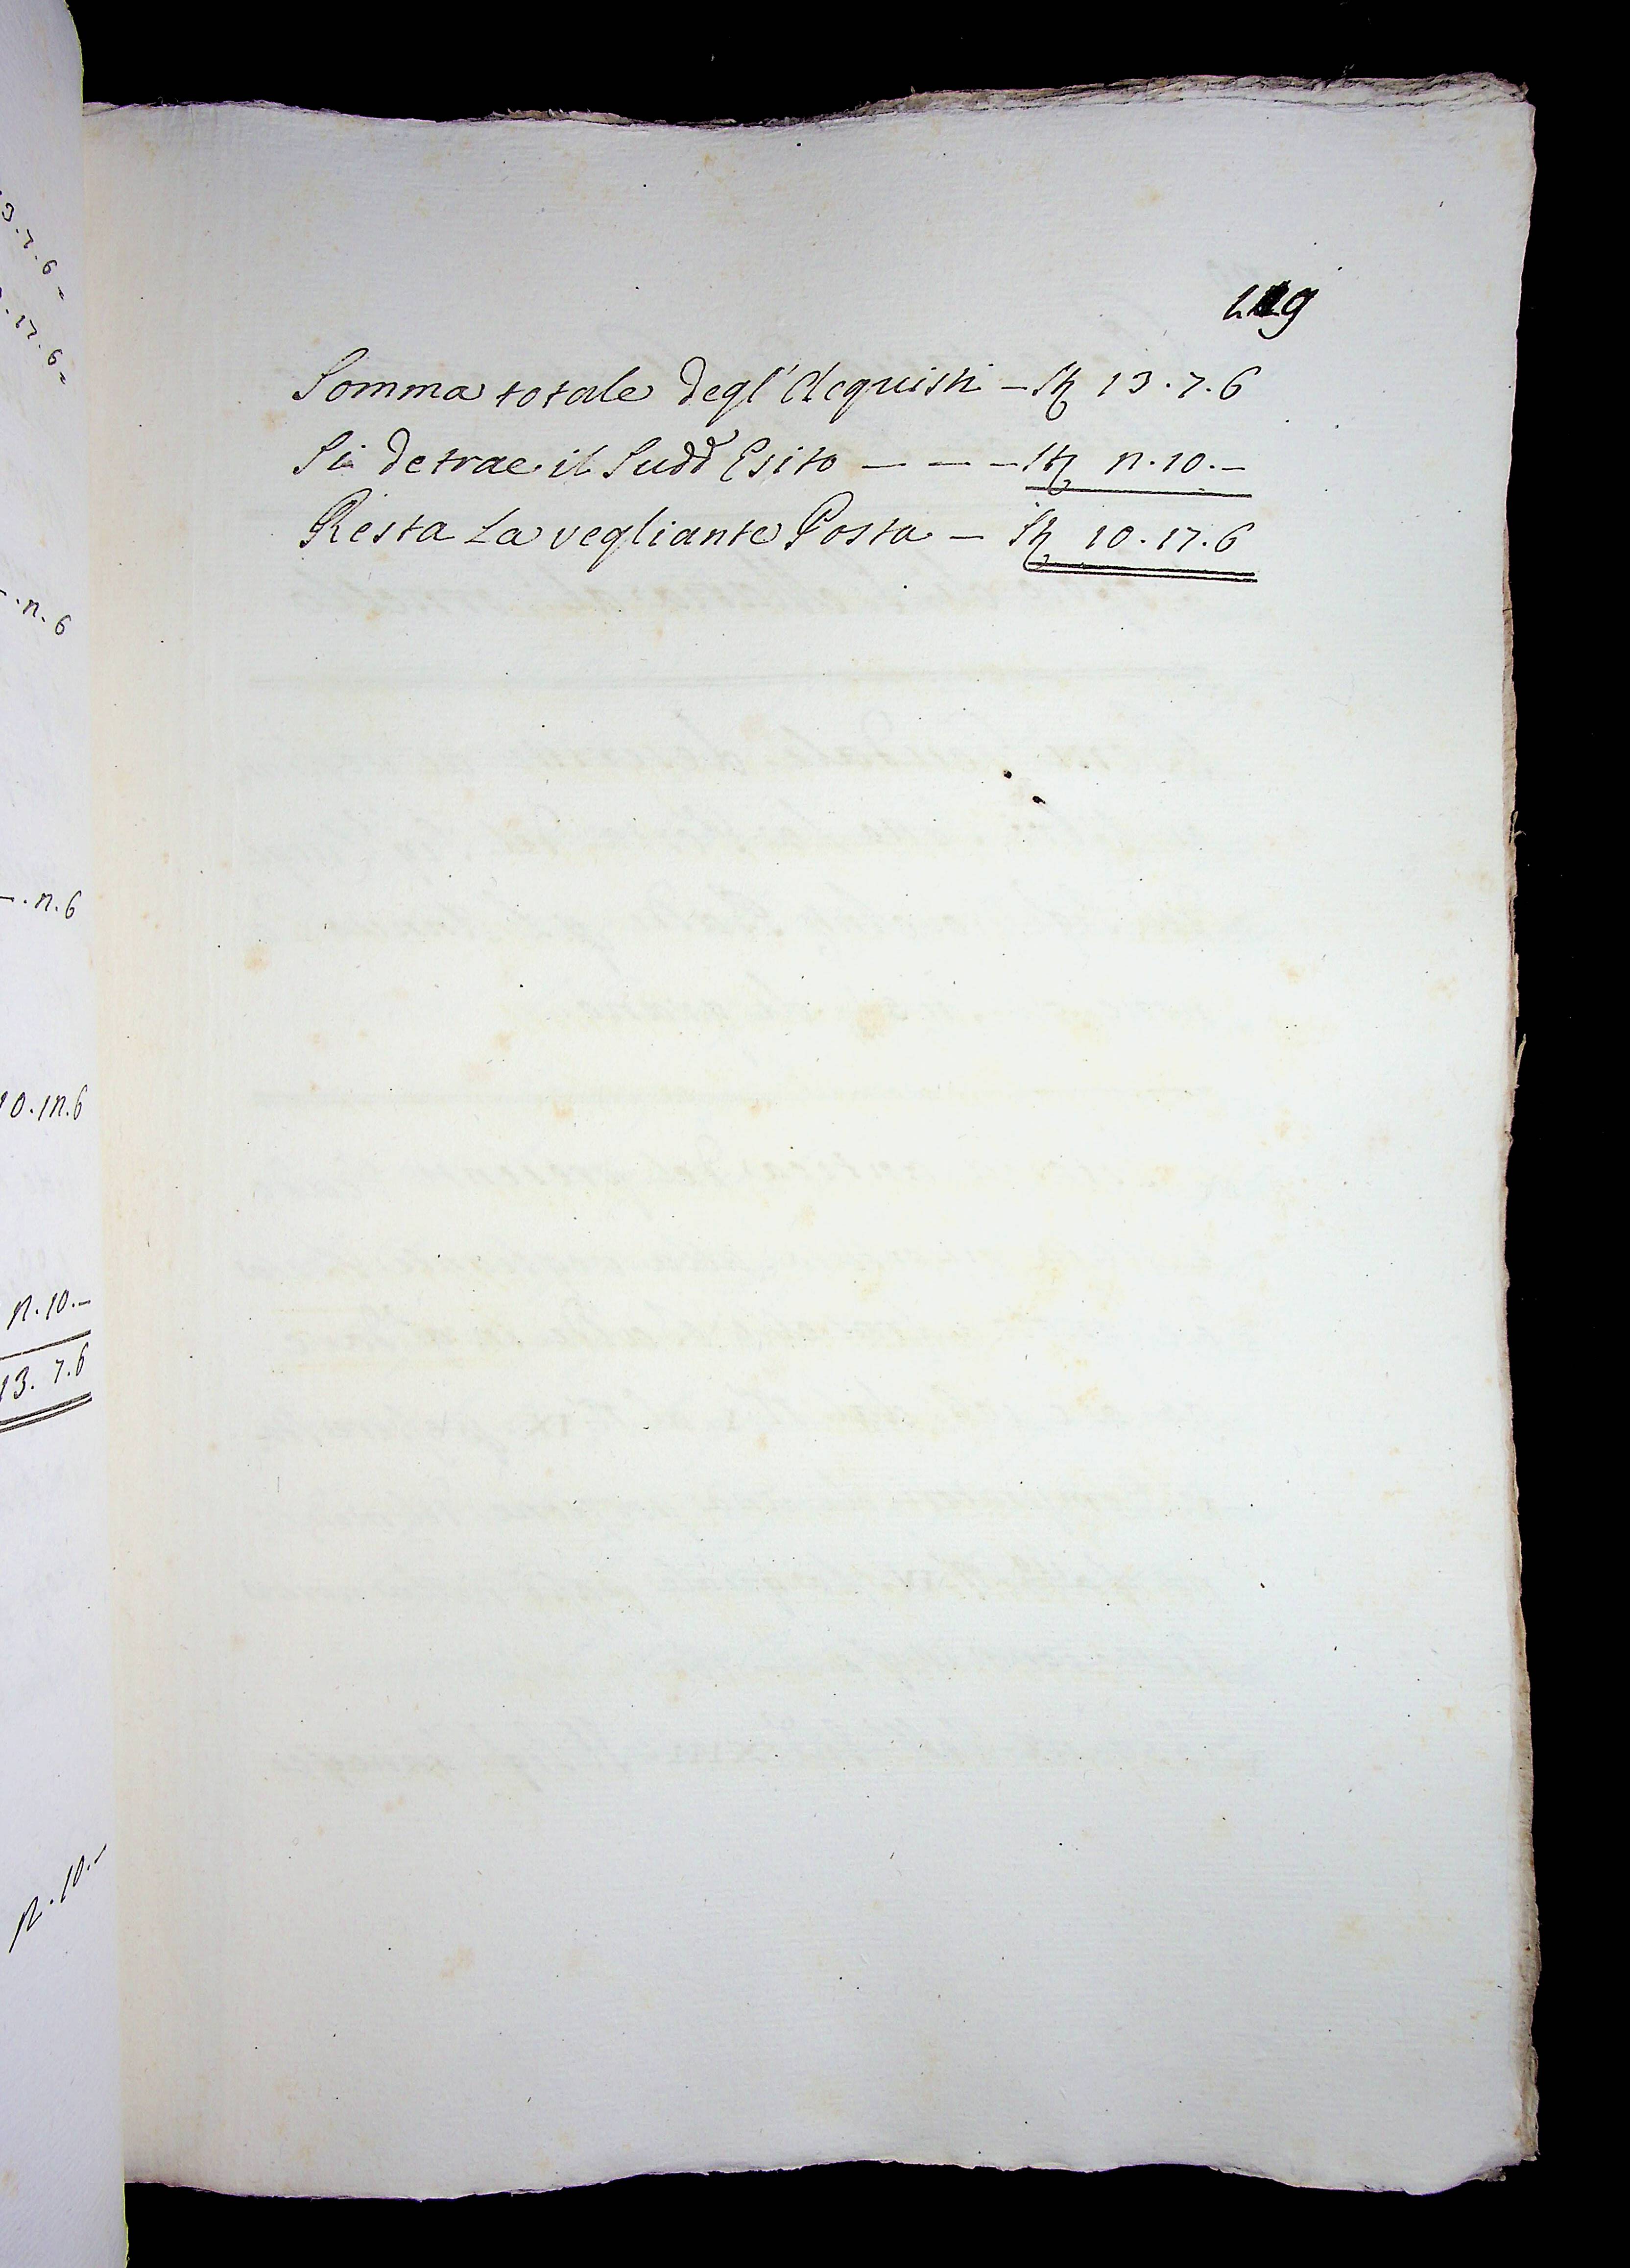 3.7.6=
.17.6=
-.n.6
-.n.6
10.1n.6
n.10.-
13.7.6
n.10.-
Somma totale degl'Acquisti — Sti 13.7.6
Si detrae il Sudd.º Esito — — — Sti n.10.—
Resta La vegliante Posta — Sti 10.17.6